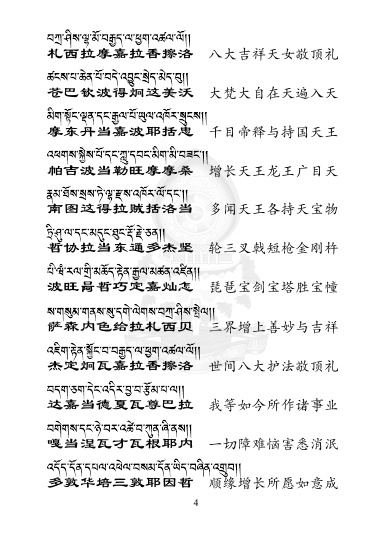 བཀྲ་ཤིས་ལྷ་མོ་བརྒྱད་ལ་ཕྱག་འཚལ་ལོ།།
札西拉摩嘉拉香擦洛 八大吉祥天女敬顶礼
ཚངས་པ་ཆེན་པོ་བདེ་འབྱུང་སྲེད་མེད་བུ།།
苍巴钦波得炯这美沃 大梵大自在天遍入天
མིག་སྟོང་ལྡན་དང་རྒྱལ་པོ་ཡུལ་འཁོར་སྲུངས།།
摩东丹当嘉波耶括忠 千目帝释与持国天王
འཕགས་སྐྱེས་པོ་དང་ཀླུ་དབང་མིག་མི་བཟང་།།
帕吉波当勒旺摩摩桑 增长天王龙王广目天
རྣམ་ཐོས་སྲས་ཏེ་ལྷ་རྫས་འཁོར་ལོ་དང་།།
南图这得拉贼括洛当 多闻天王各持天宝物
ཏྲི་ཤཱུ་ལ་དང་མདུང་ཐུང་རྡོ་རྗེ་ཅན།།
哲协拉当东通多杰坚 轮三叉戟短枪金刚杵
པི་ཝཾ་རལ་གྲི་མཆོད་རྟེན་རྒྱལ་མཚན་འཛིན།།
波旺昌哲巧定嘉灿怎 琵琶宝剑宝塔胜宝幢
ས་གསུམ་གནས་སུ་དགེ་ལེགས་བཀྲ་ཤིས་སྤེལ།།
萨森内色给拉札西贝 三界增上善妙与吉祥
འཇིག་རྟེན་སྐྱོང་བ་བརྒྱད་ལ་ཕྱག་འཚལ་ལོ།།
杰定炯瓦嘉拉香擦洛 世间八大护法敬顶礼
བདག་ཅག་དེང་འདིར་བྱ་བ་རྩོམ་པ་ལ།།
达嘉当德夏瓦尊巴拉 我等如今所作诸事业
བགེགས་དང་ཉེ་བར་འཚེ་བ་ཀུན་ཞི་ནས།།
嘎当涅瓦才瓦根耶内 一切障难恼害悉消泯
འདོད་དོན་དཔལ་འཕེལ་བསམ་དོན་ཡིད་བཞིན་འགྲུབ།།
多敦华培三敦耶因哲 顺缘增长所愿如意成
4